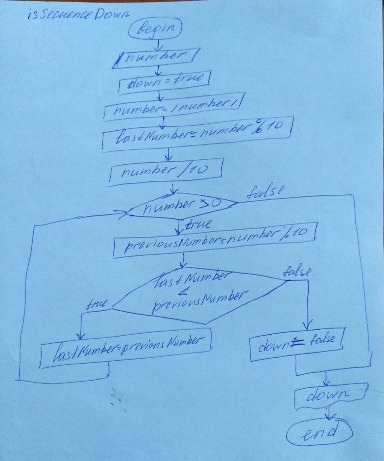 isSequenceDown
begin
number
down=true
number=|number|
lastNumber=number%10
number/10
number>0
false
true
previousNumber=number%10
lastNumber
<
previousNumber
true
false
lastNumber=previousNumber
down=false
down
end